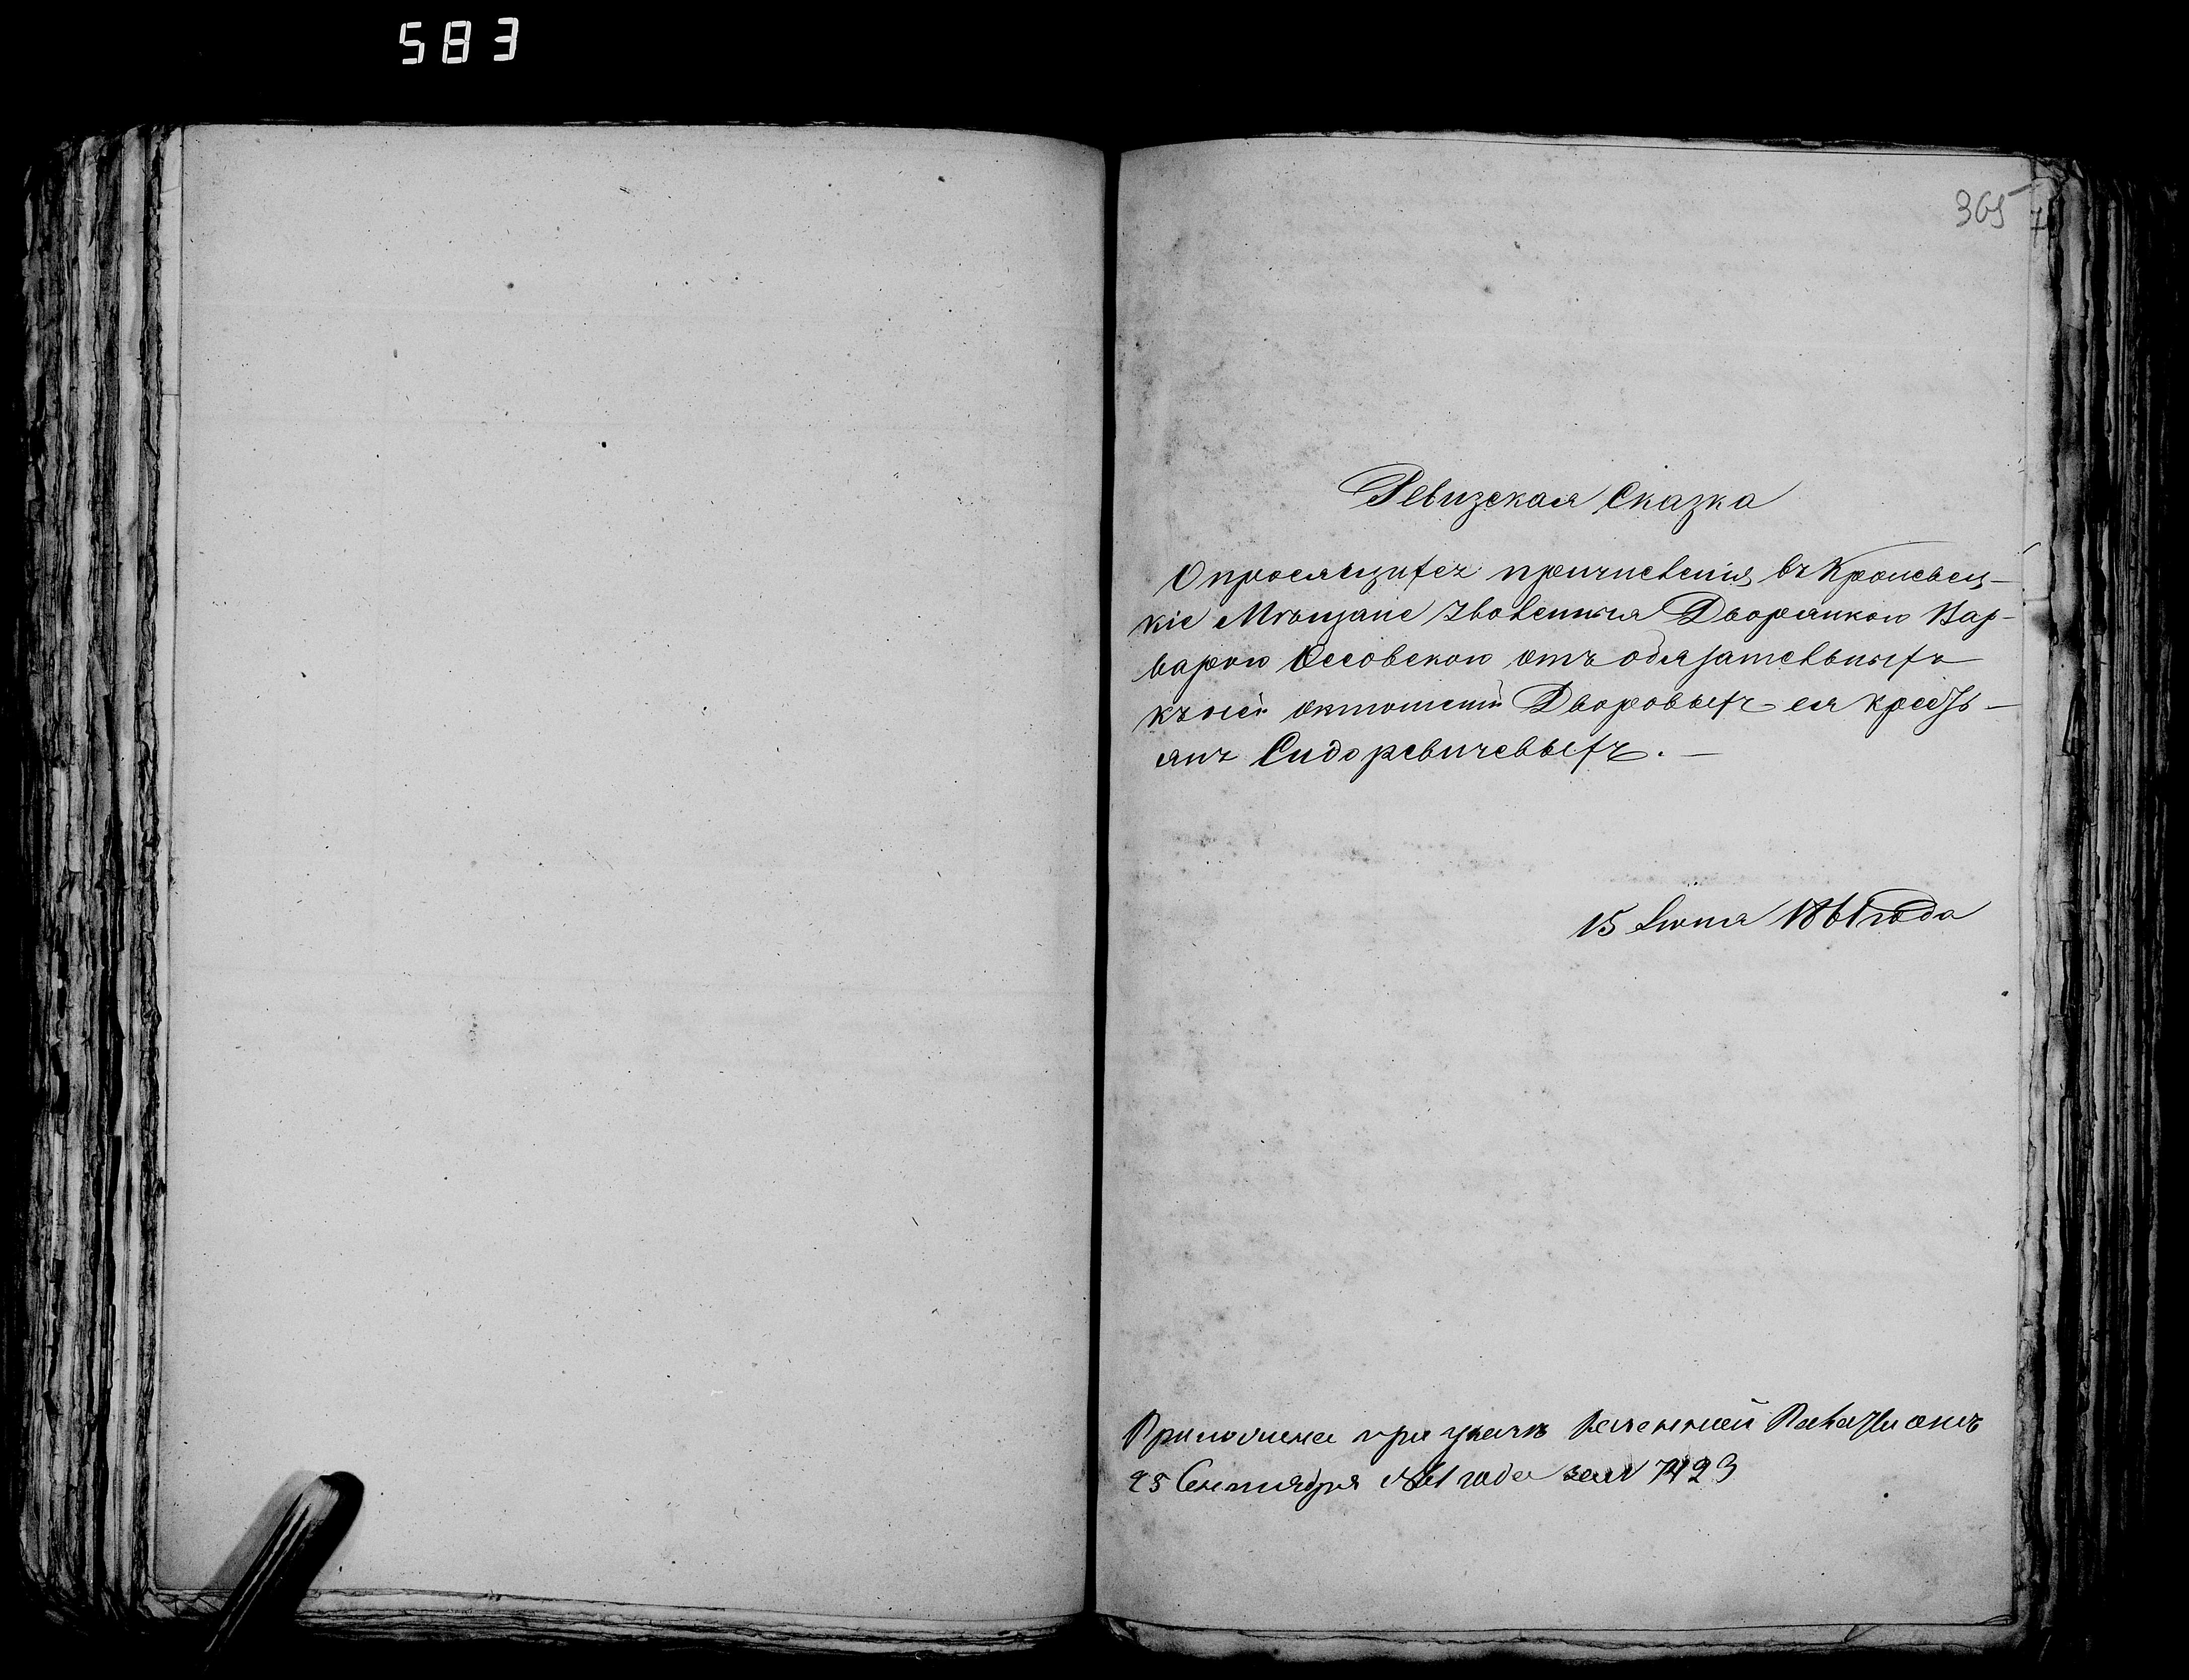 583
365
Ревизская Сказка
О просящихся причисленія въ Кролевец-
кіе Мѣщане уволенныхъ Дворянкою Вар-
варою Оссовскою отъ обязательныхъ
къ ней отношеній Дворовыхъ ея крестъ-
янъ Сидоревичевыхъ. —
15 Іюня 1861 года
при указѣ Казенной Палаты отъ
25 Сентября 1861 года за № 7423